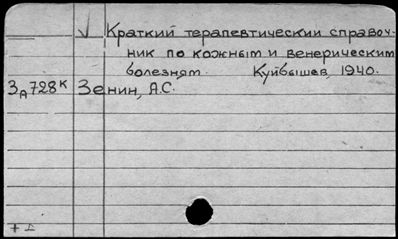 √ Краткий терапевтический справоч-
ник по кожным и венерическим
болезням. Куйбышев, 1940.
ЗА728К Зенин, А.С.
+ I